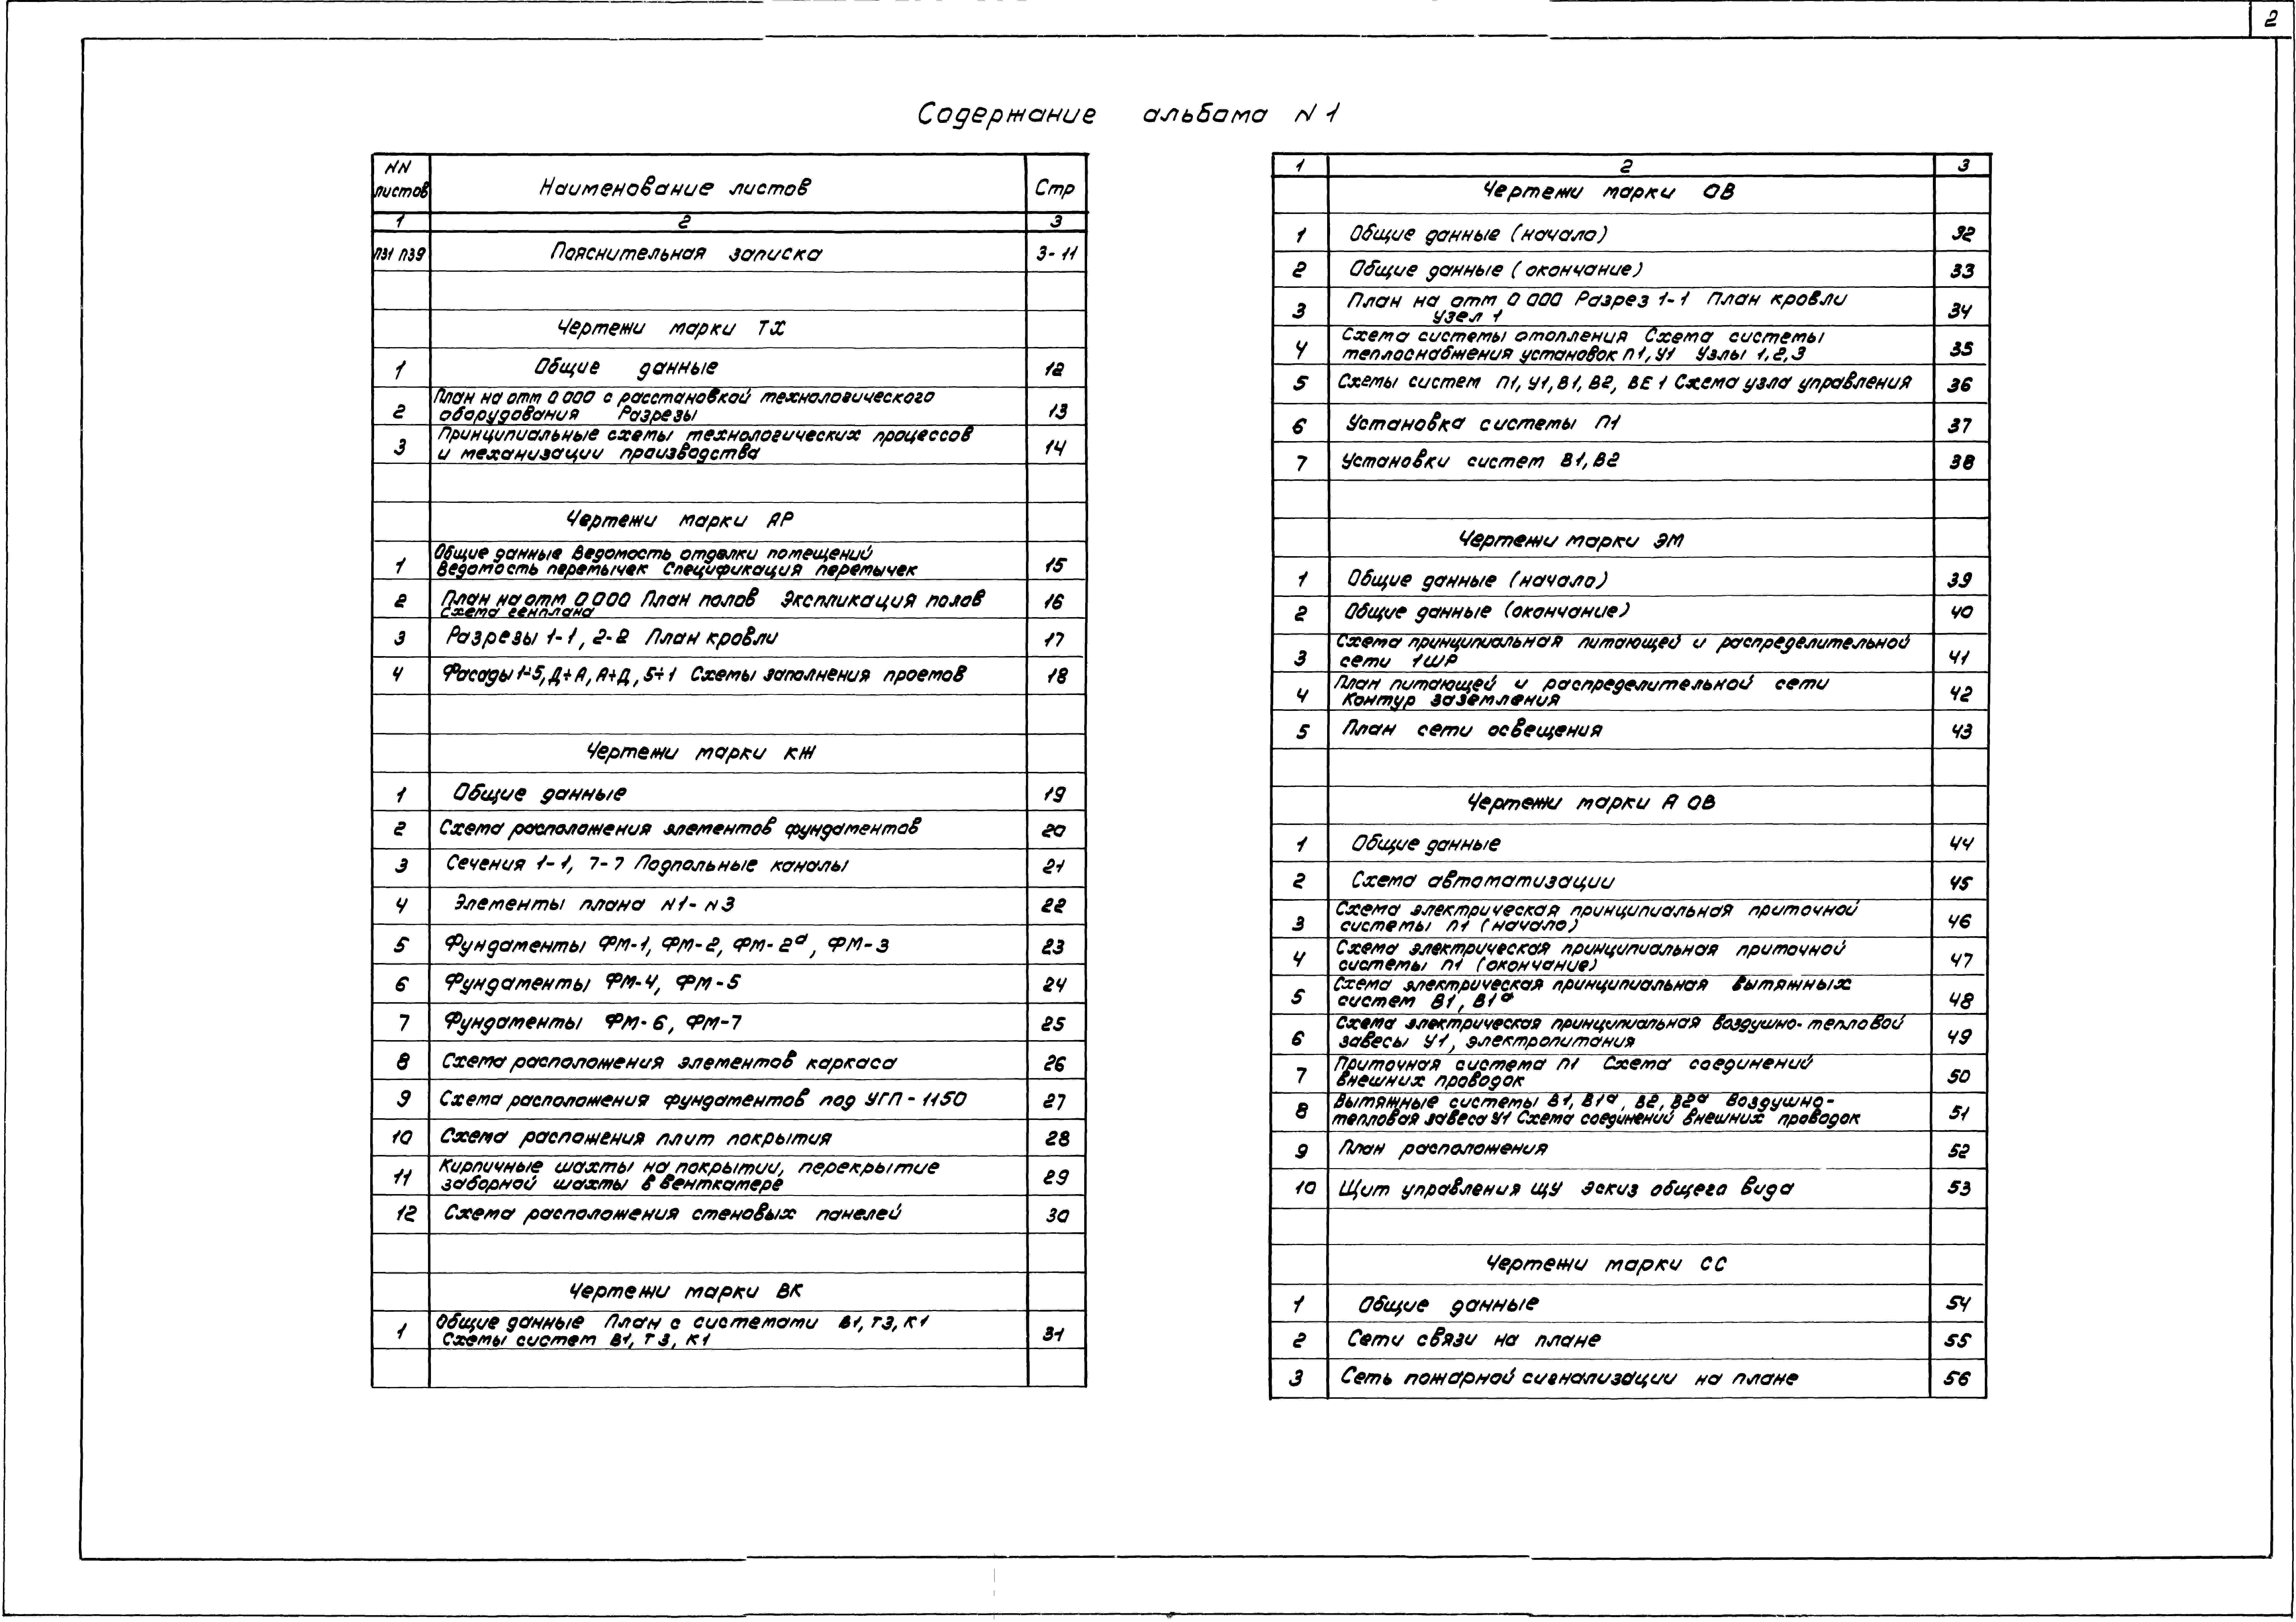 2
Содержание альбома N 1
NN листов Наименование листов Стр
1 2 3
ПЗ1 ПЗ9 Пояснительная записка 3-11
Чертежи марки ТХ
1 Общие данные 12
План на отм 0 000 с расстановкой технологического
2 оборудования Разрезы 13
Принципиальные схемы технологических процессов
3 и механизации производства 14
Чертежи марки АР
Общие данные Ведомость отделки помещений
1 Ведомость перемычек Спецификация перемычек 15
2 План на отм 0 000 План полов Экспликация полов 16
Схема генплана
3 Разрезы 1-1, 2-2 План кровли 17
4 Фасады 1÷5, Д÷А, А÷Д, 5÷1 Схемы заполнения проемов 18
Чертежи марки КЖ
1 Общие данные 19
2 Схема расположения элементов фундаментов 20
3 Сечения 1-1, 7-7 Подпольные каналы 21
4 Элементы плана N1-N3 22
5 Фундаменты ФМ-1, ФМ-2, ФМ-2а, ФМ-3 23
6 Фундаменты ФМ-4, ФМ-5 24
7 Фундаменты ФМ-6, ФМ-7 25
8 Схема расположения элементов каркаса 26
9 Схема расположения фундаментов под УГП-1150 27
10 Схема распожения плит покрытия 28
Кирпичные шахты на покрытии, перекрытие
11 заборной шахты в венткамере 29
12 Схема расположения стеновых панелей 30
Чертежи марки ВК
Общие данные План с системами В1, Т3, К1
1 Схемы систем В1, Т3, К1 31
1 2 3
Чертежи марки ОВ
1 Общие данные (начало) 32
2 Общие данные (окончание) 33
План на отм 0 000 Разрез 1-1 План кровли
3 Узел 1 34
Схема системы отопления Схема системы
4 теплоснабжения установок П1, У1 Узлы 1,2,3 35
5 Схемы систем П1, У1, В1, В2, ВЕ 1 Схема узла управления 36
6 Установка системы П1 37
7 Установки систем В1, В2 38
Чертежи марки ЭМ
1 Общие данные (начало) 39
2 Общие данные (окончание) 40
Схема принципиальная питающей и распределительной
3 сети 1ШР 41
План питающей и распределительной сети
4 Контур заземления 42
5 План сети освещения 43
Чертежи марки А ОВ
1 Общие данные 44
2 Схема автоматизации 45
Схема электрическая принципиальная приточной
3 системы П1 (начало) 46
Схема электрическая принципиальная приточной
4 системы П1 (окончание) 47
Схема электрическая принципиальная вытяжных
5 систем В1, В1а 48
Схема электрическая принципиальная воздушно-тепловой
6 завесы У1, электропитания 49
Приточная система П1 Схема соединений
7 внешних проводок 50
Вытяжные системы В1, В1а, В2, В2а Воздушно-
8 тепловая завеса У1 Схема соединений внешних проводок 51
9 План расположения 52
10 Щит управления ЩУ Эскиз общего вида 53
Чертежи марки СС
1 Общие данные 54
2 Сети связи на плане 55
3 Сеть пожарной сигнализации на плане 56